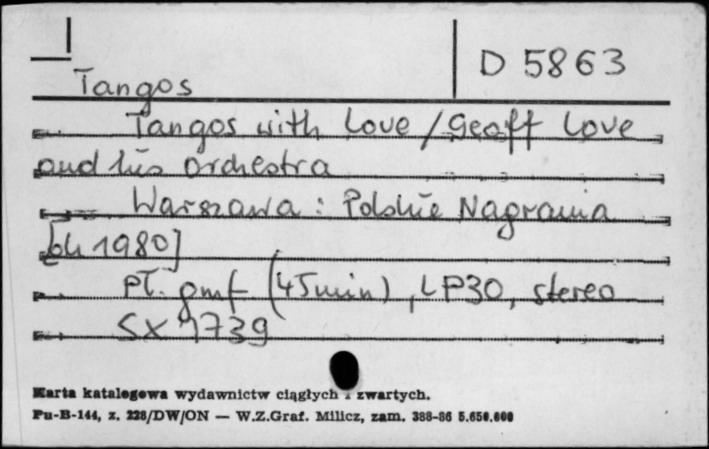 D 5863
Tangos
Tangos with Love / Geoff Love
and his orchestra
Warszawa : Polskie Nagrania
[ok 1980]
Pł. gmf (45 min), LP30, stereo
SX 1739
Karta katalogowa wydawnictw ciągłych i zwartych.
Pu-B-144, z. 228/DW/ON — W.Z.Graf. Milicz, zam. 388-86 5.650.000